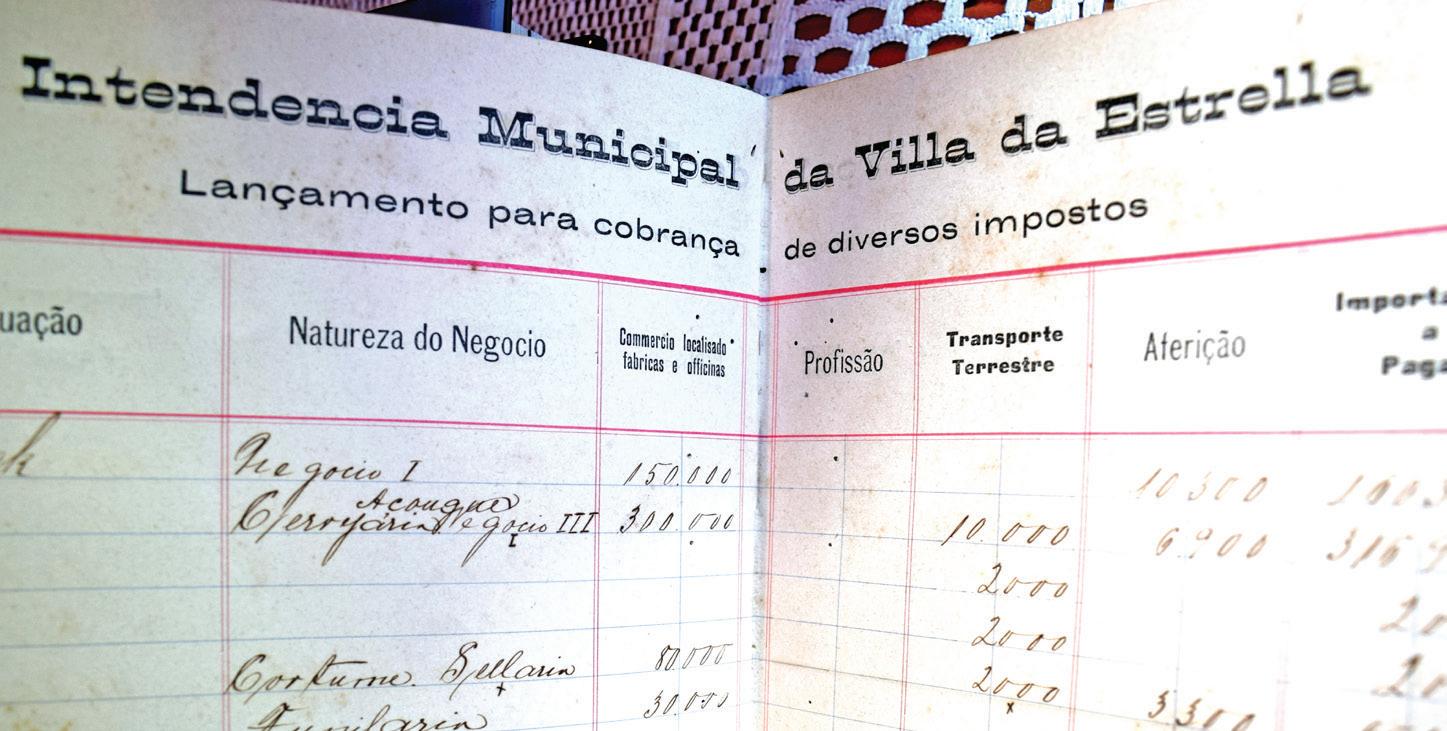 Intendencia Municipal da Villa da Estrella
Lançamento para cobrança de diversos impostos
uação Natureza do Negocio Commercio localisado fabricas e officinas Profissão Transporte Terrestre Aferição Import a Pag
Negocio I 150.000 10300
Açougue
Cervejaria Negocio III 300.000 10.000 6900
I
2000
2000
Cortume. Sellaria 80.000 2000
Funilaria 30.000 3300